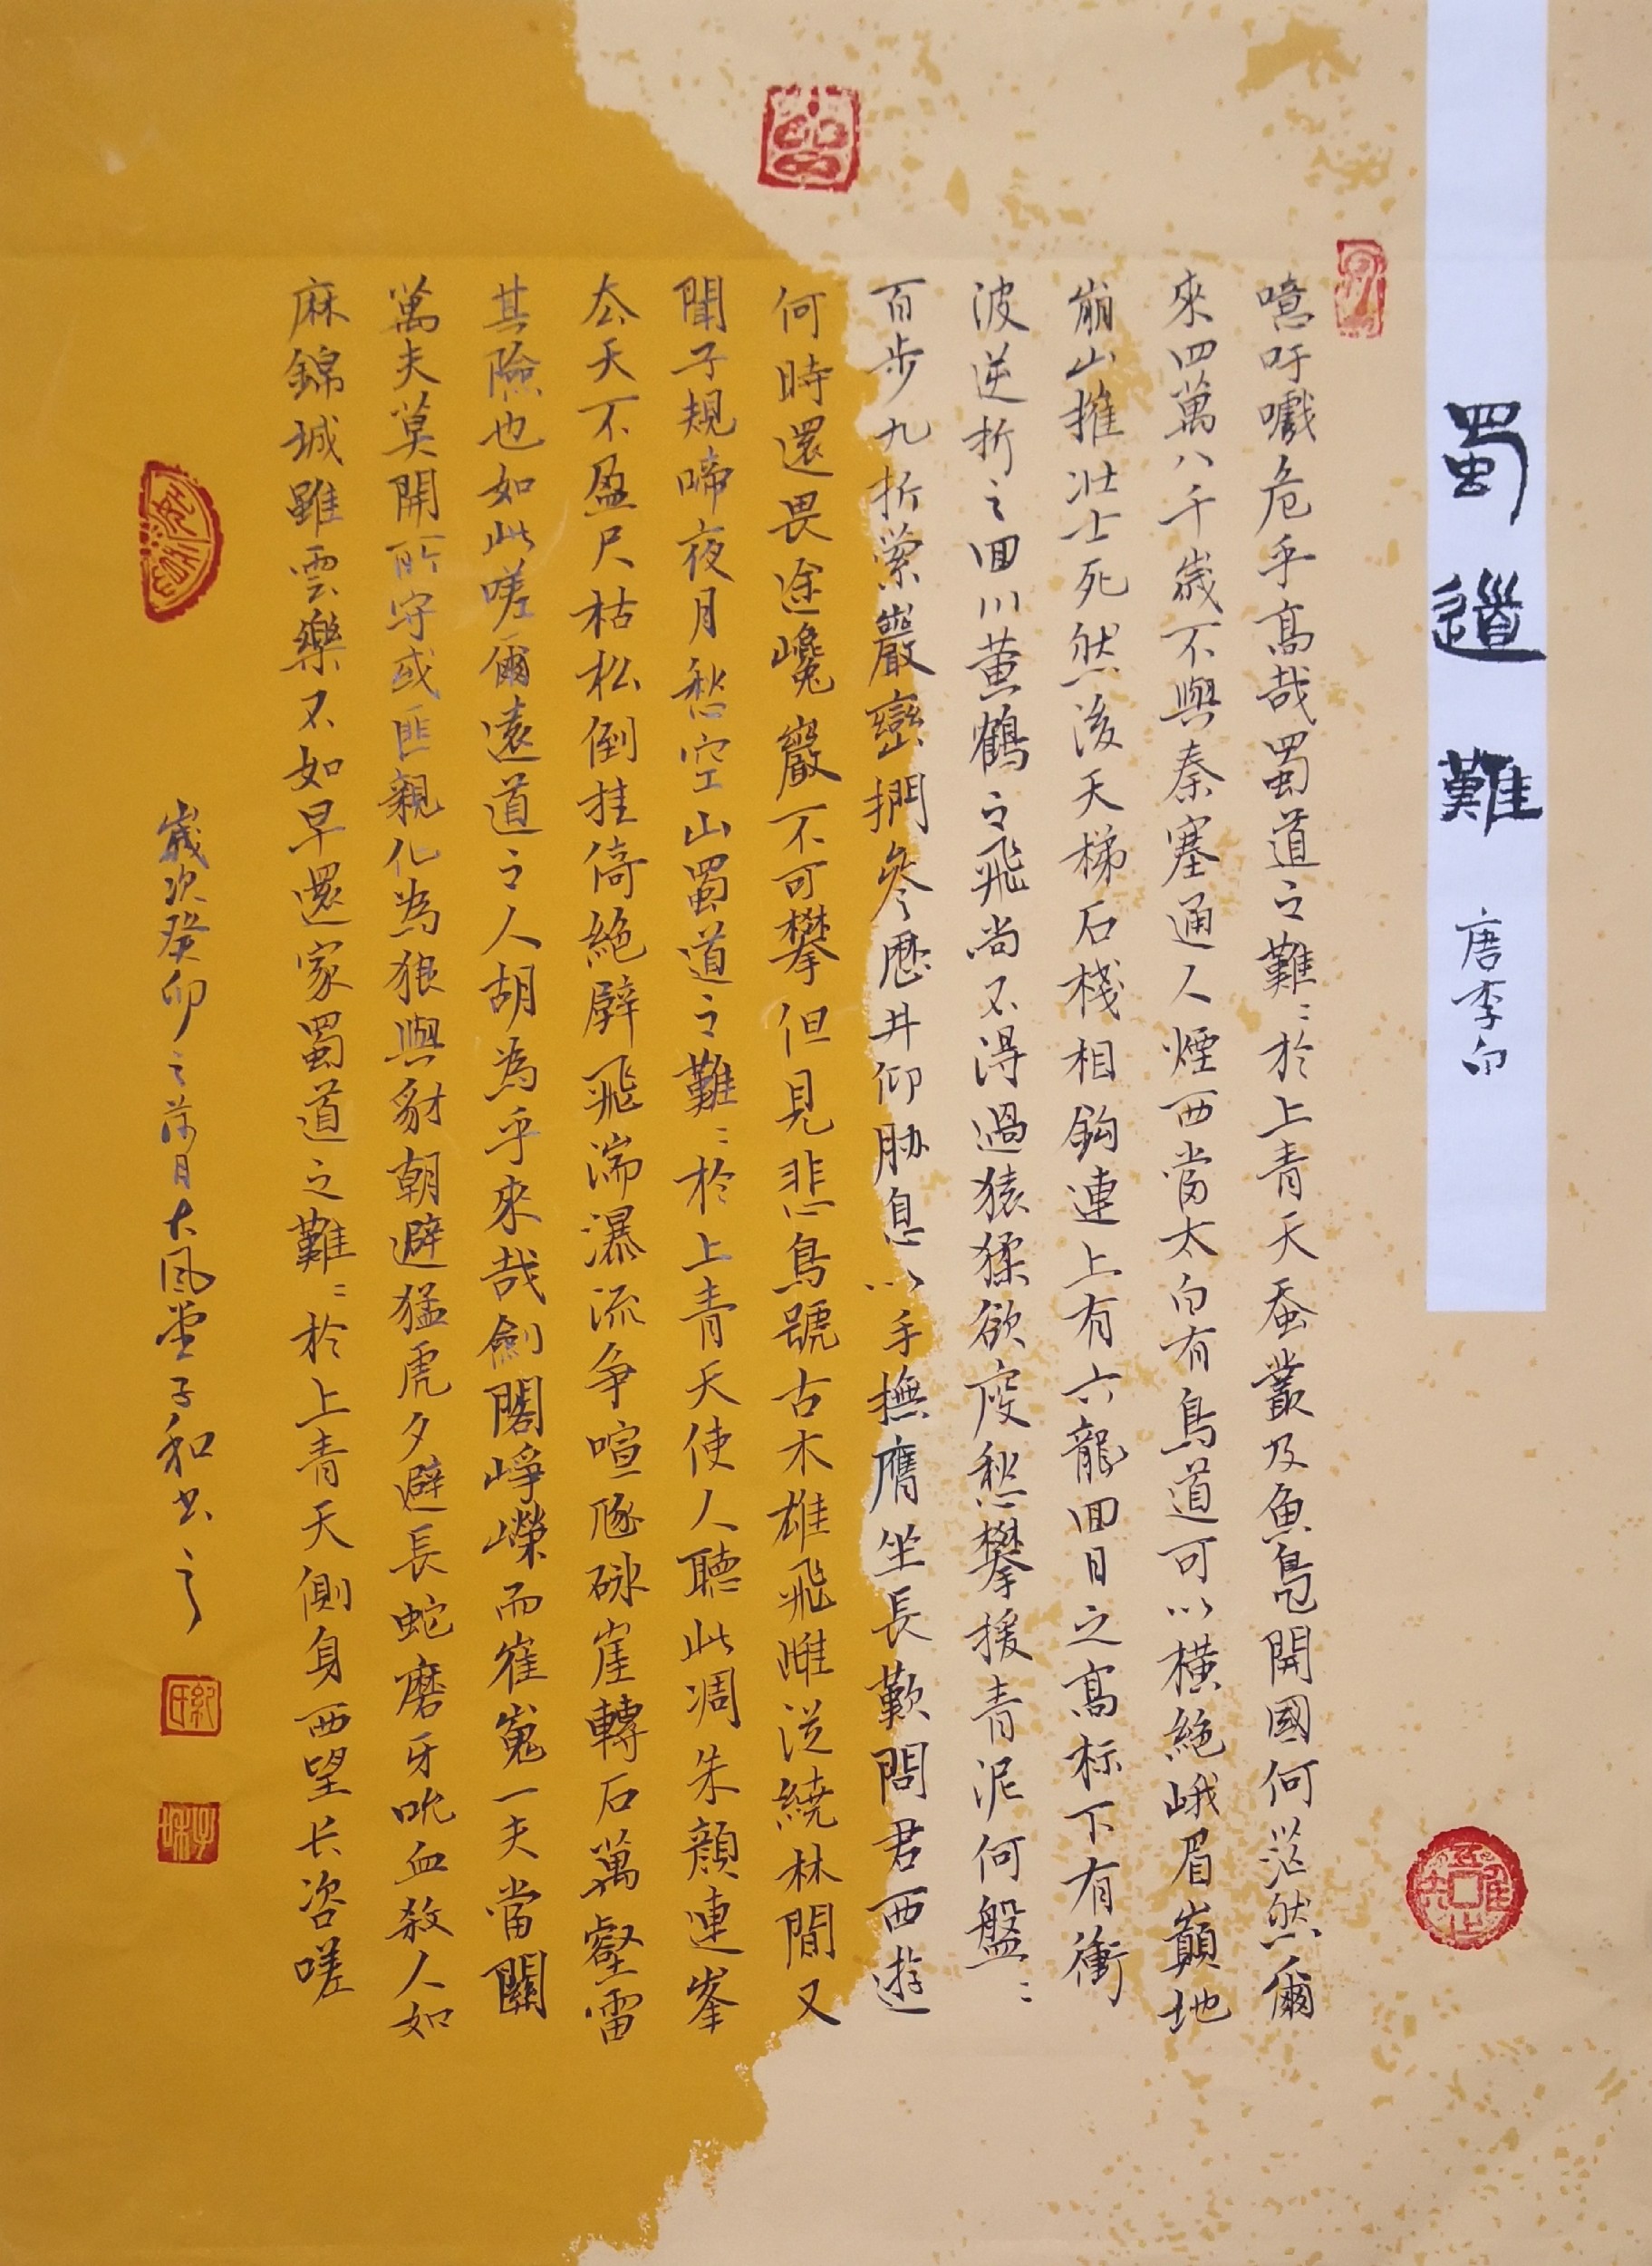 蜀道難 唐李白
噫吁嚱危乎高哉蜀道之難〻於上青天蚕叢及魚鳧開國何茫然爾
來四萬八千歲不與秦塞通人煙西當太白有鳥道可以橫絕峨眉巔地
崩山摧壯士死然後天梯石棧相鈎連上有六龍回日之高标下有衝
波逆折之回川黄鶴之飛尚不得過猿猱欲度愁攀援青泥何盤〻
百步九折縈巖巒捫參歷井仰胁息以手撫膺坐長歎問君西遊
何時還畏途巉巖不可攀但見悲鳥號古木雄飛雌従繞林間又
聞子規啼夜月愁空山蜀道之難〻於上青天使人聽此凋朱顏連峯
去天不盈尺枯松倒挂倚絕壁飛湍瀑流争喧豗砯崖轉石萬壑雷
其險也如此嗟爾遠道之人胡為乎來哉劍閣崢嶸而崔嵬一夫當關
萬夫莫開所守或匪親化為狼與豺朝避猛虎夕避長蛇磨牙吮血殺人如
麻錦城雖雲樂不如早還家蜀道之難〻於上青天側身西望长咨嗟
歲次癸卯之荷月大風堂子和书之
紀氏
子和